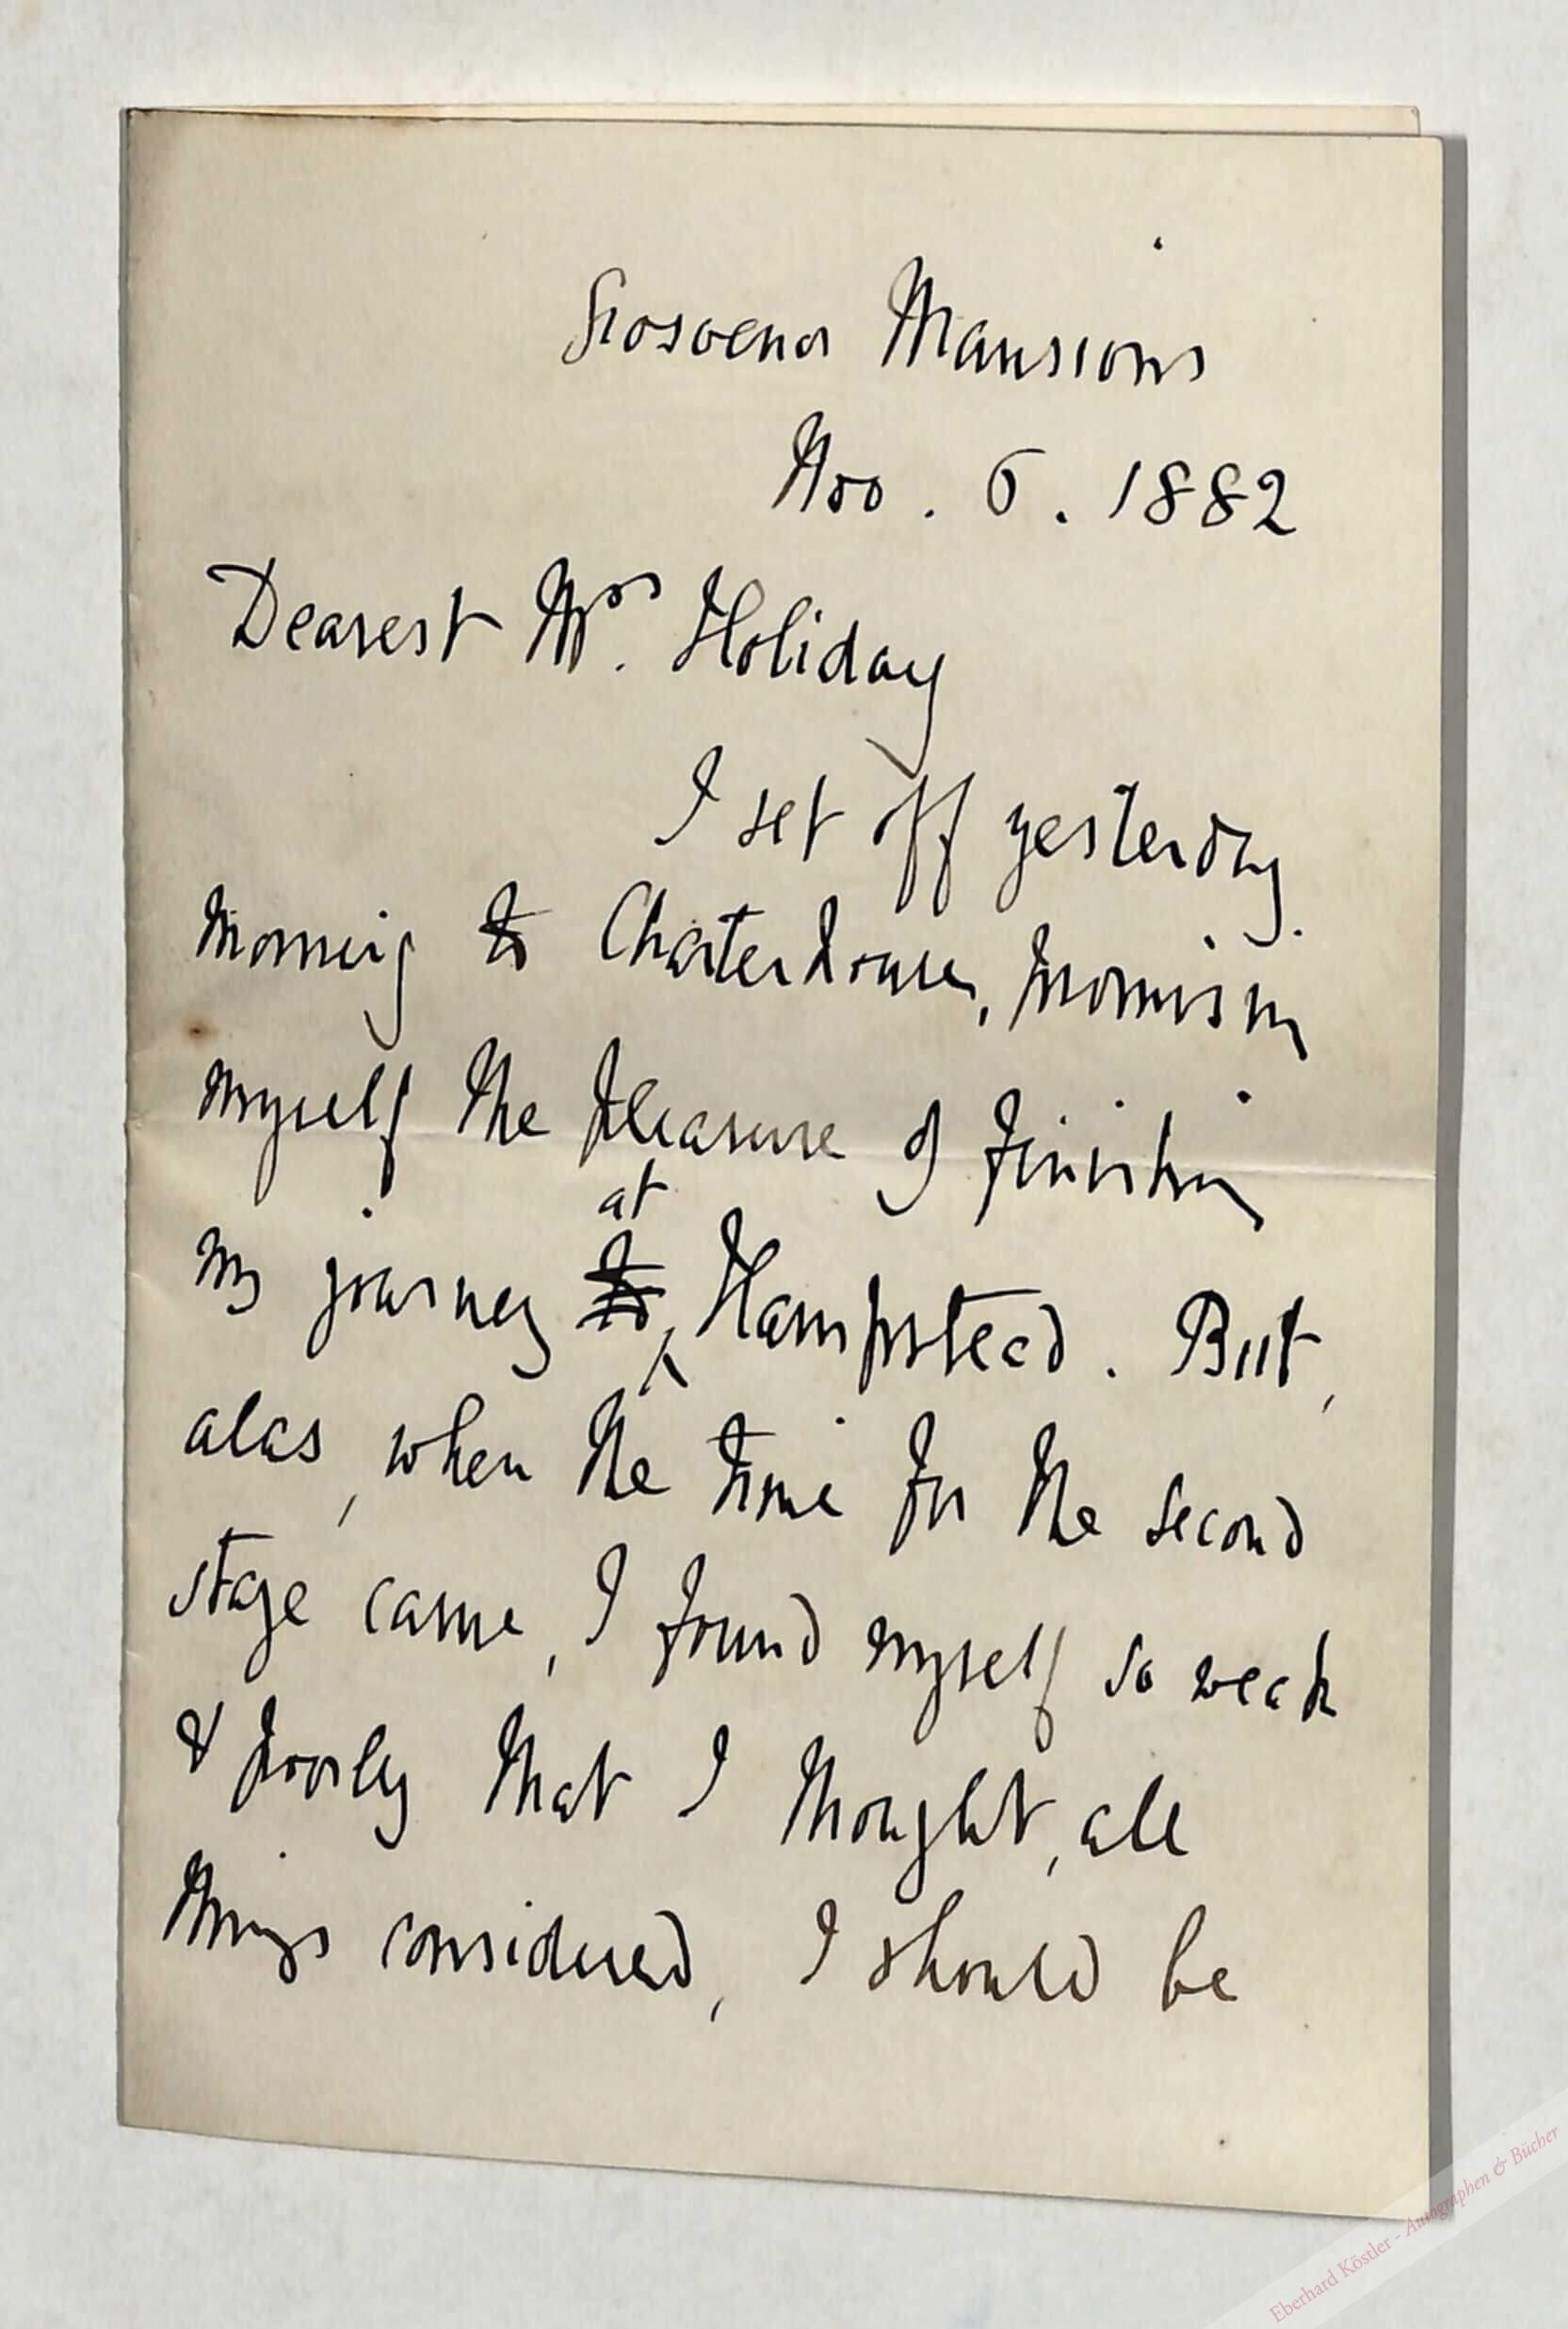 Grosvenor Mansions
Nov. 6. 1882
Dearest Mrs. Holiday
I set off yesterday
morning to Charterhouse, promising
myself the pleasure of finishing
at
my journey to Hampstead. But,
alas, when the time for the second
stage came, I found myself so weak
& poorly that I thought, all
things considered, I should be
Eberhard Köstler - Autographen & Bücher